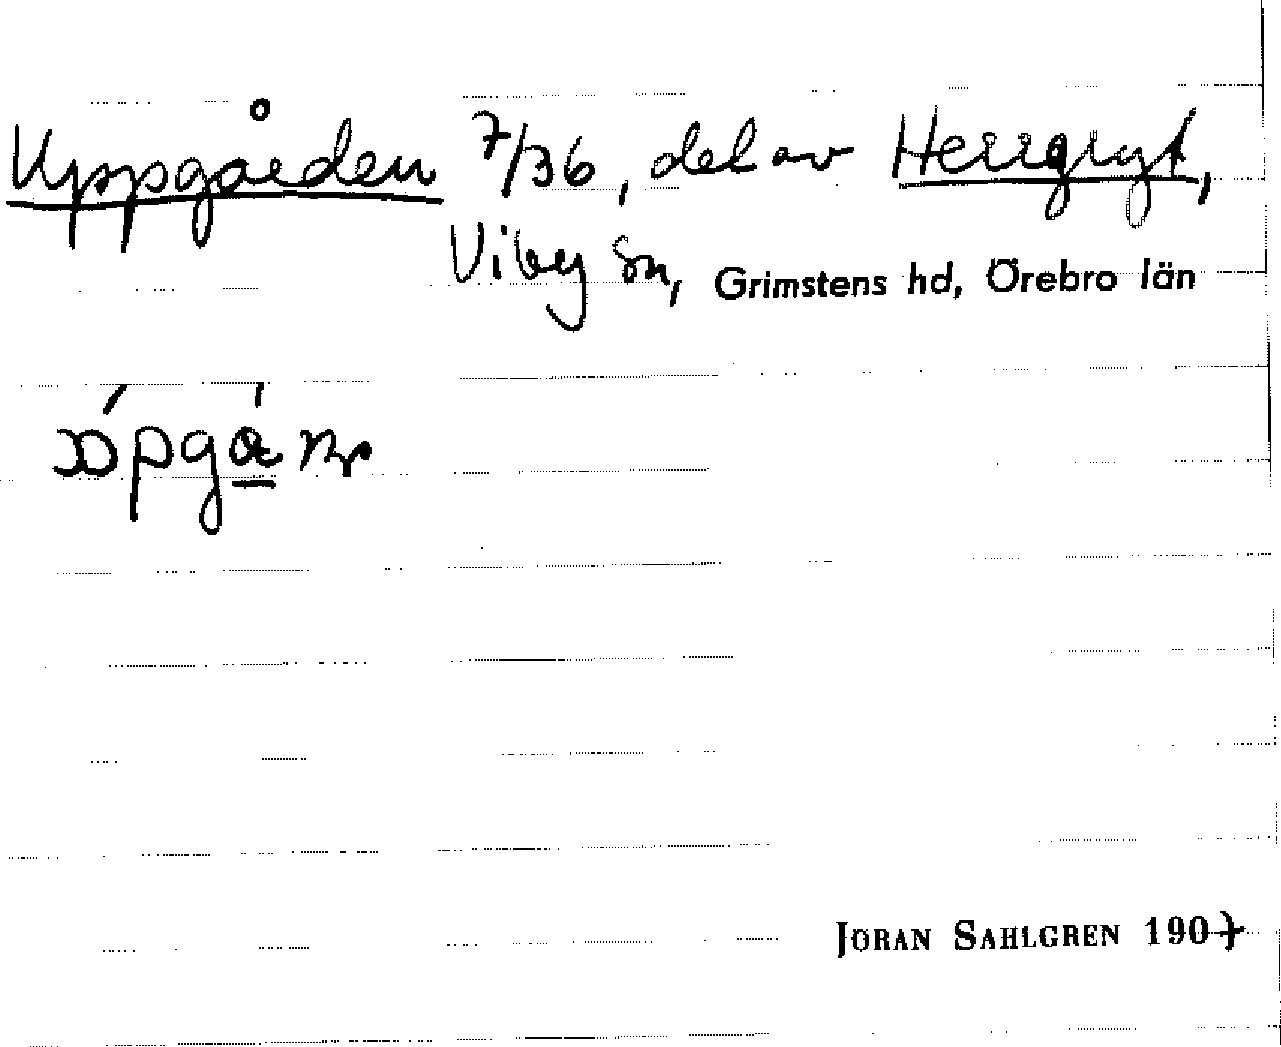 Uppgården 7/36, del av Herrgryt,
Viby sn, Grimstens hd, Örebro län
JÖRAN SAHLGREN 1907